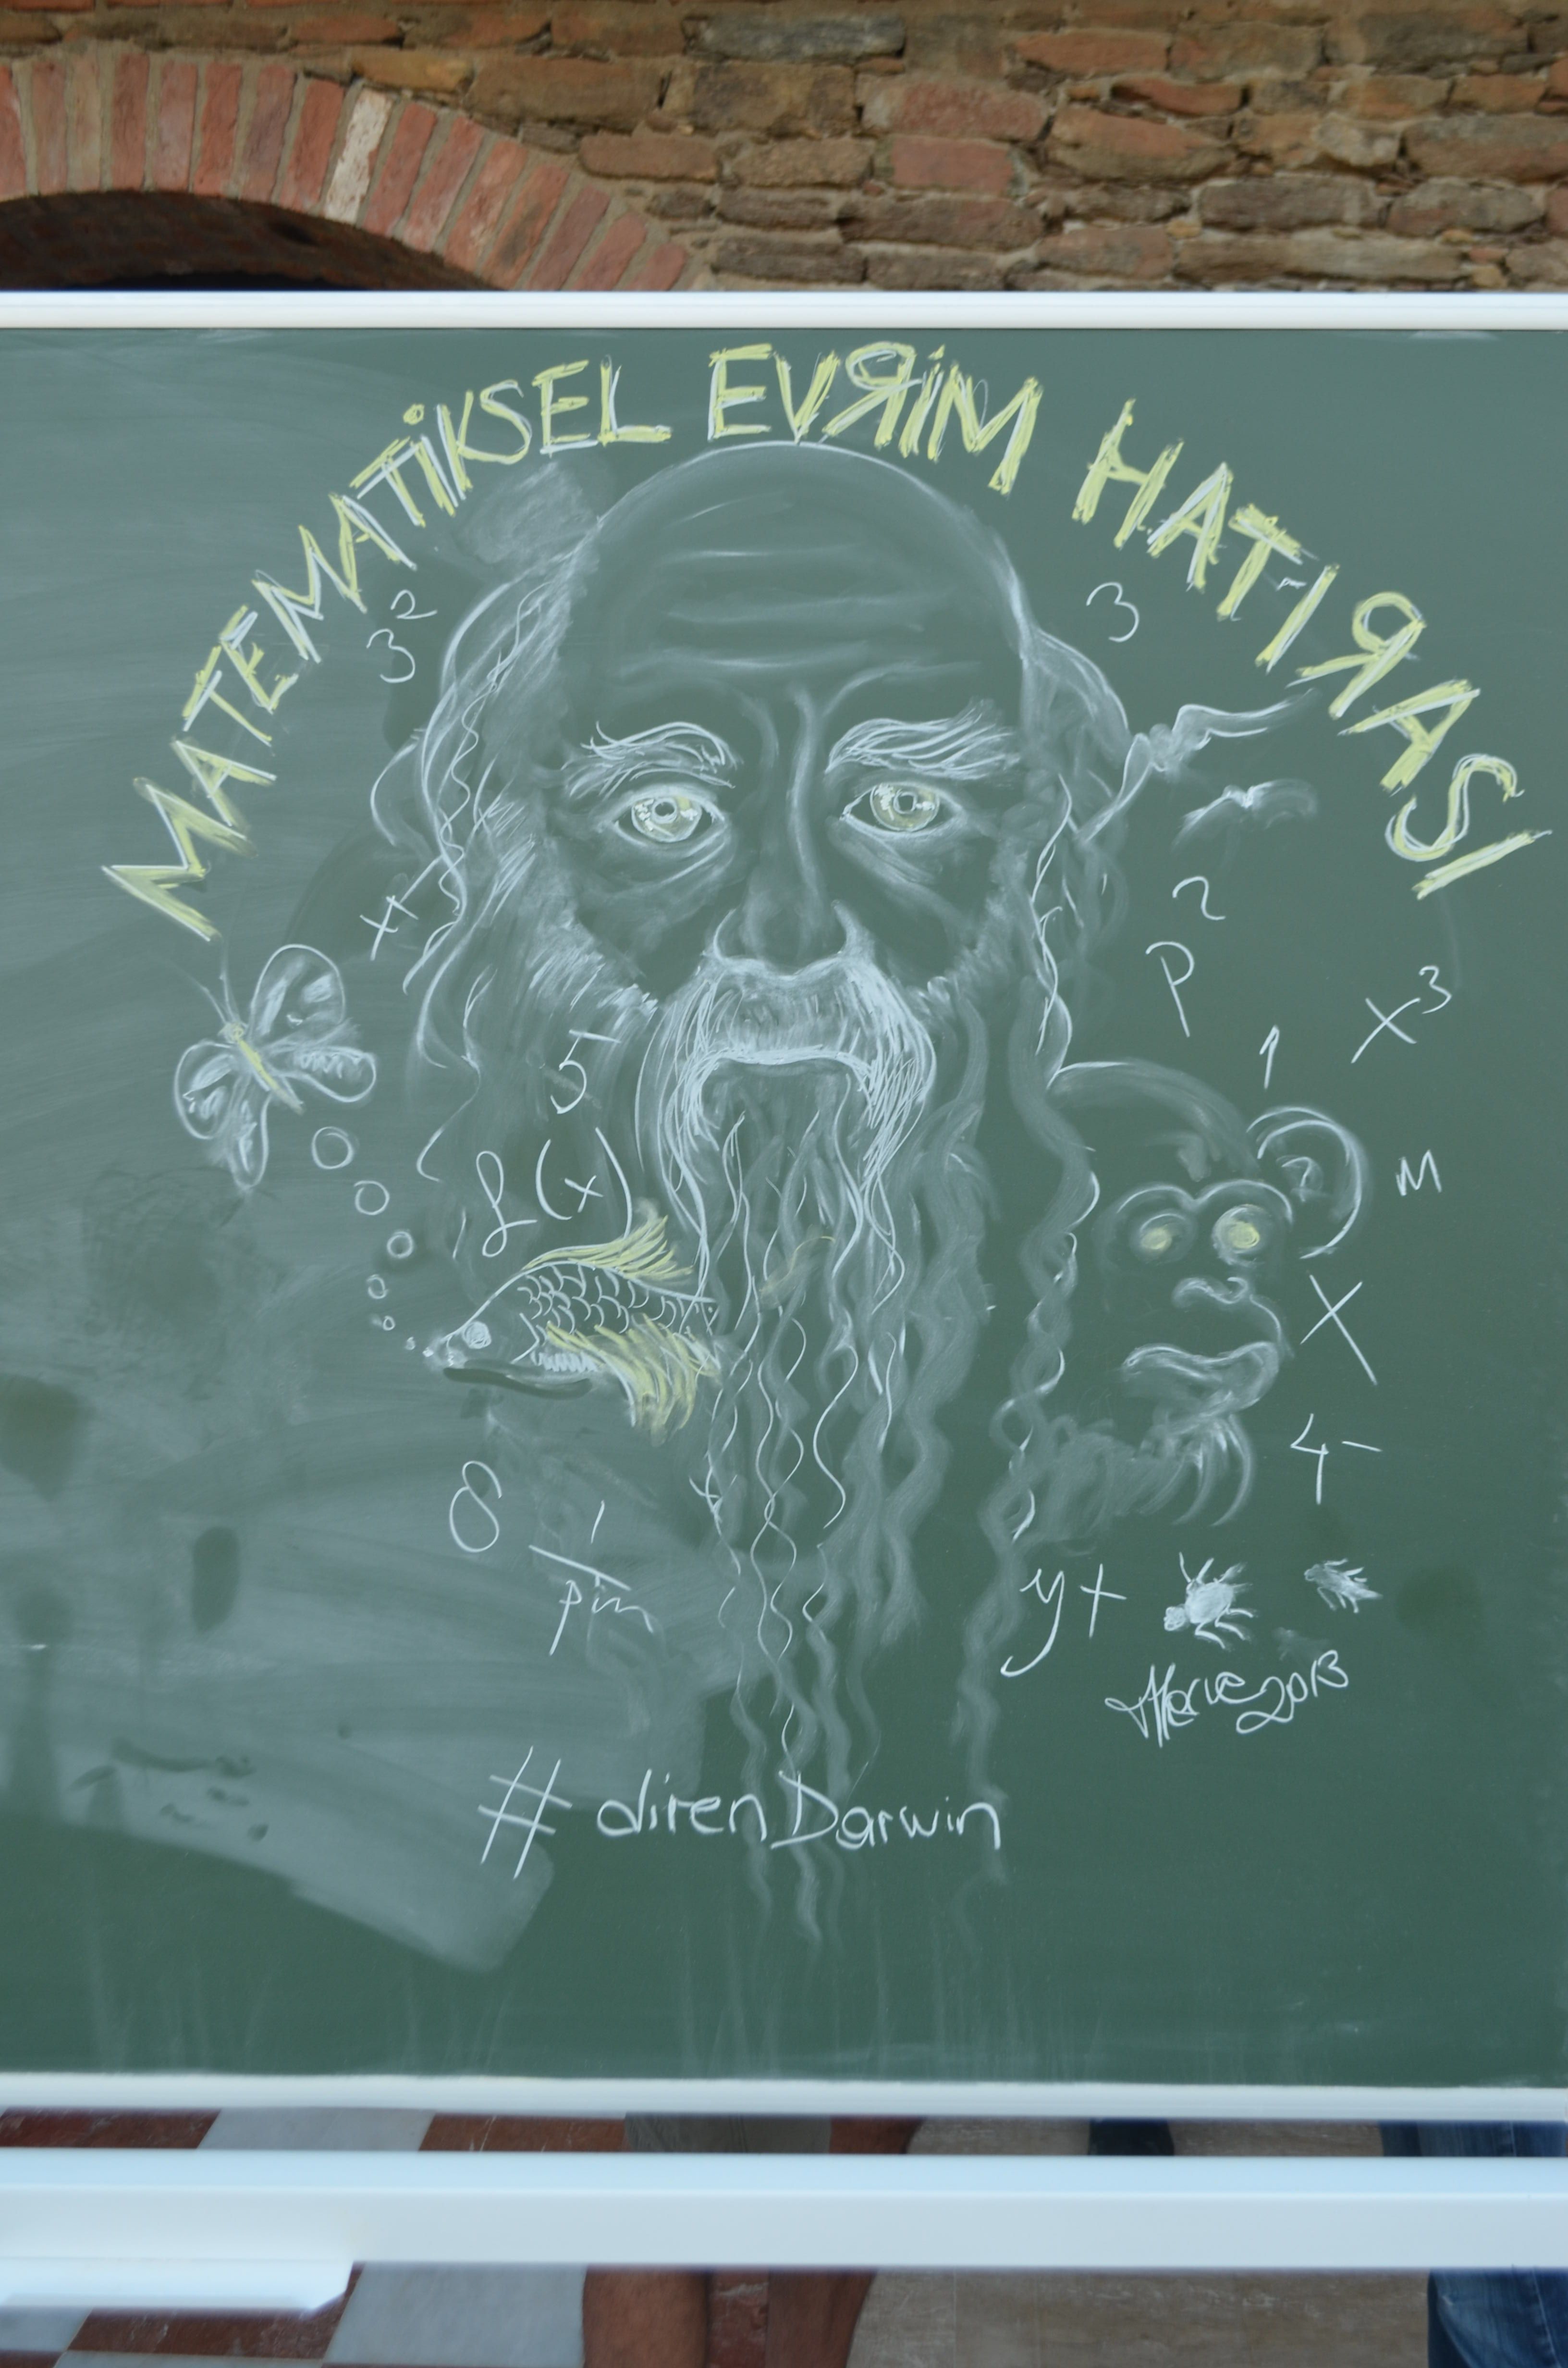 MATEMATİKSEL EVRİM HATIRASI
3²
3
x
2
P
x³
1
5
M
f(x)
X
4-
8
1
y+
Merve 2013
# direnDarwin